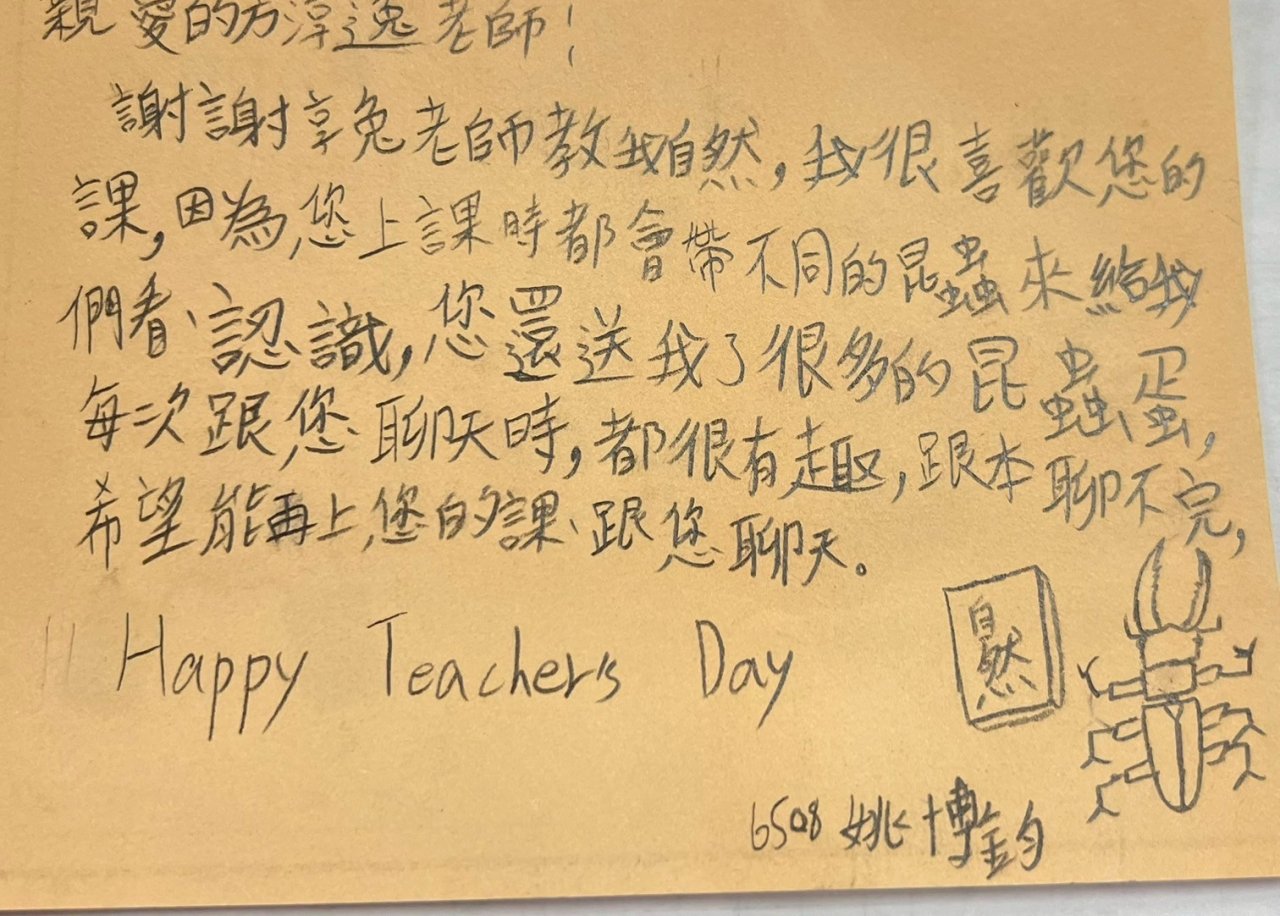 親愛的方淳逸老師!
謝謝享兔老師教我自然,我很喜歡您的
課,因為您上課時都會帶不同的昆蟲來給我
們看、認識,您還送我了很多的昆蟲蛋,
每次跟您聊天時,都很有趣,跟本聊不完,
希望能再上您的課、跟您聊天。
Happy Teacher's Day
自然
6508 姚博鈞